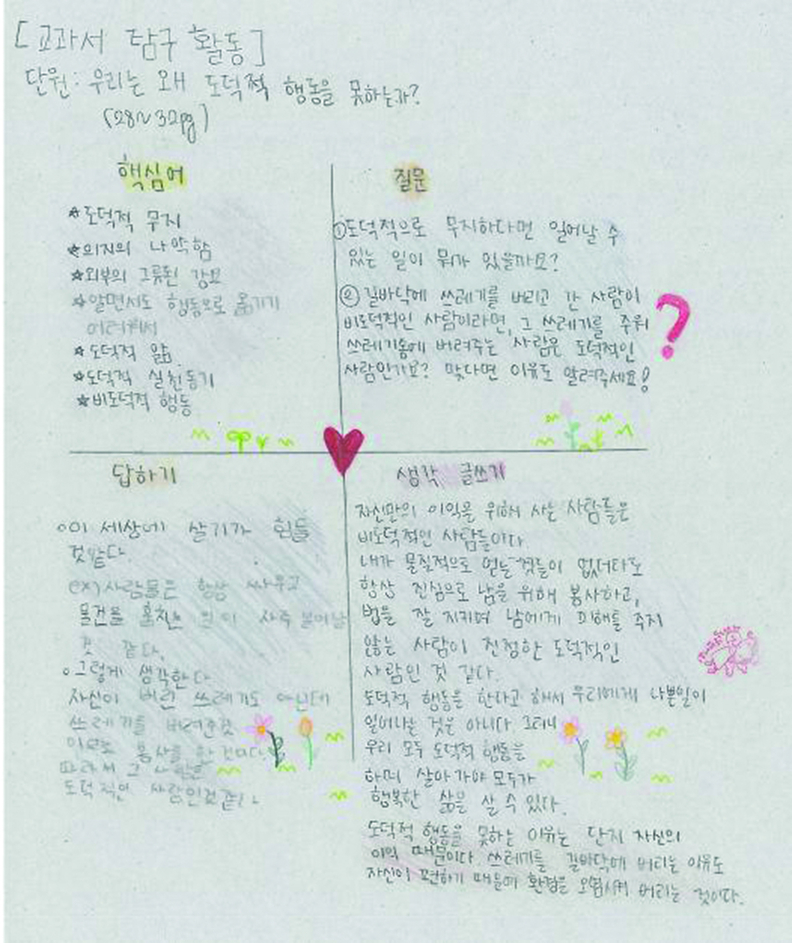 [교과서 탐구 활동]
단원: 우리는 왜 도덕적 행동을 못하는가?
(28~32pg)
핵심어
★도덕적 무지
★의지의 나약함
★외부의 그릇된 강요
★알면서도 행동으로 옮기기
어려워서
★도덕적 앎
★도덕적 실천동기
★비도덕적 행동
질문
①도덕적으로 무지하다면 일어날 수
있는 일이 뭐가 있을까요?
②길바닥에 쓰레기를 버리고 간 사람이
비도덕적인 사람이라면, 그 쓰레기를 주워
쓰레기통에 버려주는 사람은 도덕적인
사람인가요? 맞다면 이유도 알려주세요!
?
답하기
이 세상에 살기가 힘들
것같다.
ex)사람들은 항상 싸우고
물건을 훔치는 일이 자주 불어날
것 같다.
그렇게 생각한다
자신이 버린 쓰레기도 아닌데
쓰레기를 버려준것
봉사를 한 것이다.
따라서 그
도덕적인 사람인것같다
생각 글쓰기
자신만의 이익을 위해 사는 사람들은
비도덕적인 사람들이다
내가 물질적으로 얻는 것들이 없더라도
항상 진심으로 남을 위해 봉사하고,
법을 잘 지키며 남에게 피해를 주지
않는 사람이 진정한 도덕적인
사람인 것 같다.
도덕적 행동을 한다고 해서 우리에게 나쁜일이
일어나는 것은 아니다 그러니
우리 모두 도덕적 행동을
하며 살아가야 모두가
행복한 삶을 살 수 있다.
도덕적 행동을 못하는 이유는 단지 자신의
이익 때문이다 쓰레기를 길바닥에 버리는 이유도
자신이 편하기 때문에 환경을 오염시켜 버리는 것이다.